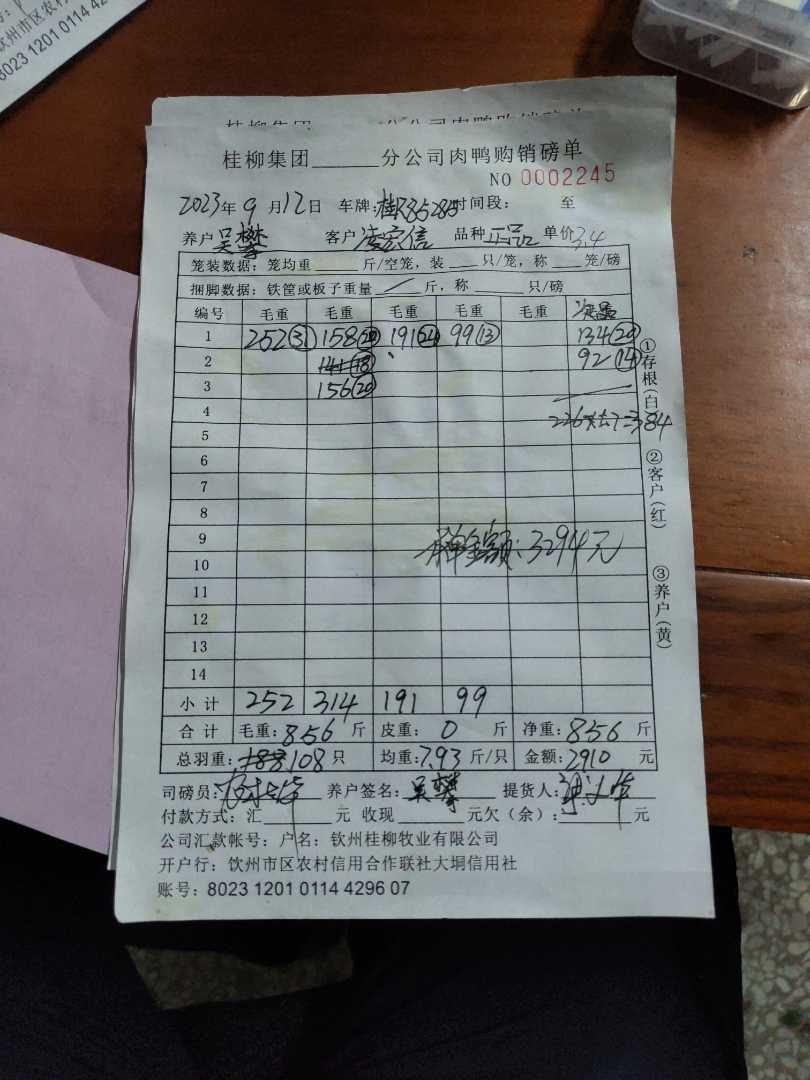 钦州市区农村
8023 1201 0114 4296
桂柳集团 分公司肉鸭购销磅单
桂柳集团______分公司肉鸭购销磅单
NO 0002245
2023年9月12日 车牌:桂R85285 时间段: 至
养户 吴攀 客户 凌宏信 品种 正品 单价3.4
笼装数据:笼均重____斤/空笼,装___只/笼,称___笼/磅
捆脚数据:铁筐或板子重量 / 斤,称______只/磅
编号 毛重 毛重 毛重 毛重 毛重 次品
1 252(31) 158(20) 191(24) 99(13) 134(20)
2 141(18) 92(14)
3 156(20)
4 226
5
6
7
8
9 金额:3294元
10
11
12
13
14
小计 252 314 191 99
合计 毛重:856斤 皮重:0斤 净重:856斤
总羽重:108只 均重:7.93斤/只 金额:2910元
司磅员: 养户签名:吴攀 提货人:
付款方式:汇______元 收现______元欠(余):______元
公司汇款帐号:户名:钦州桂柳牧业有限公司
开户行:钦州市区农村信用合作联社大垌信用社
账号:8023 1201 0114 4296 07
①存根(白)
②客户(红)
③养户(黄)